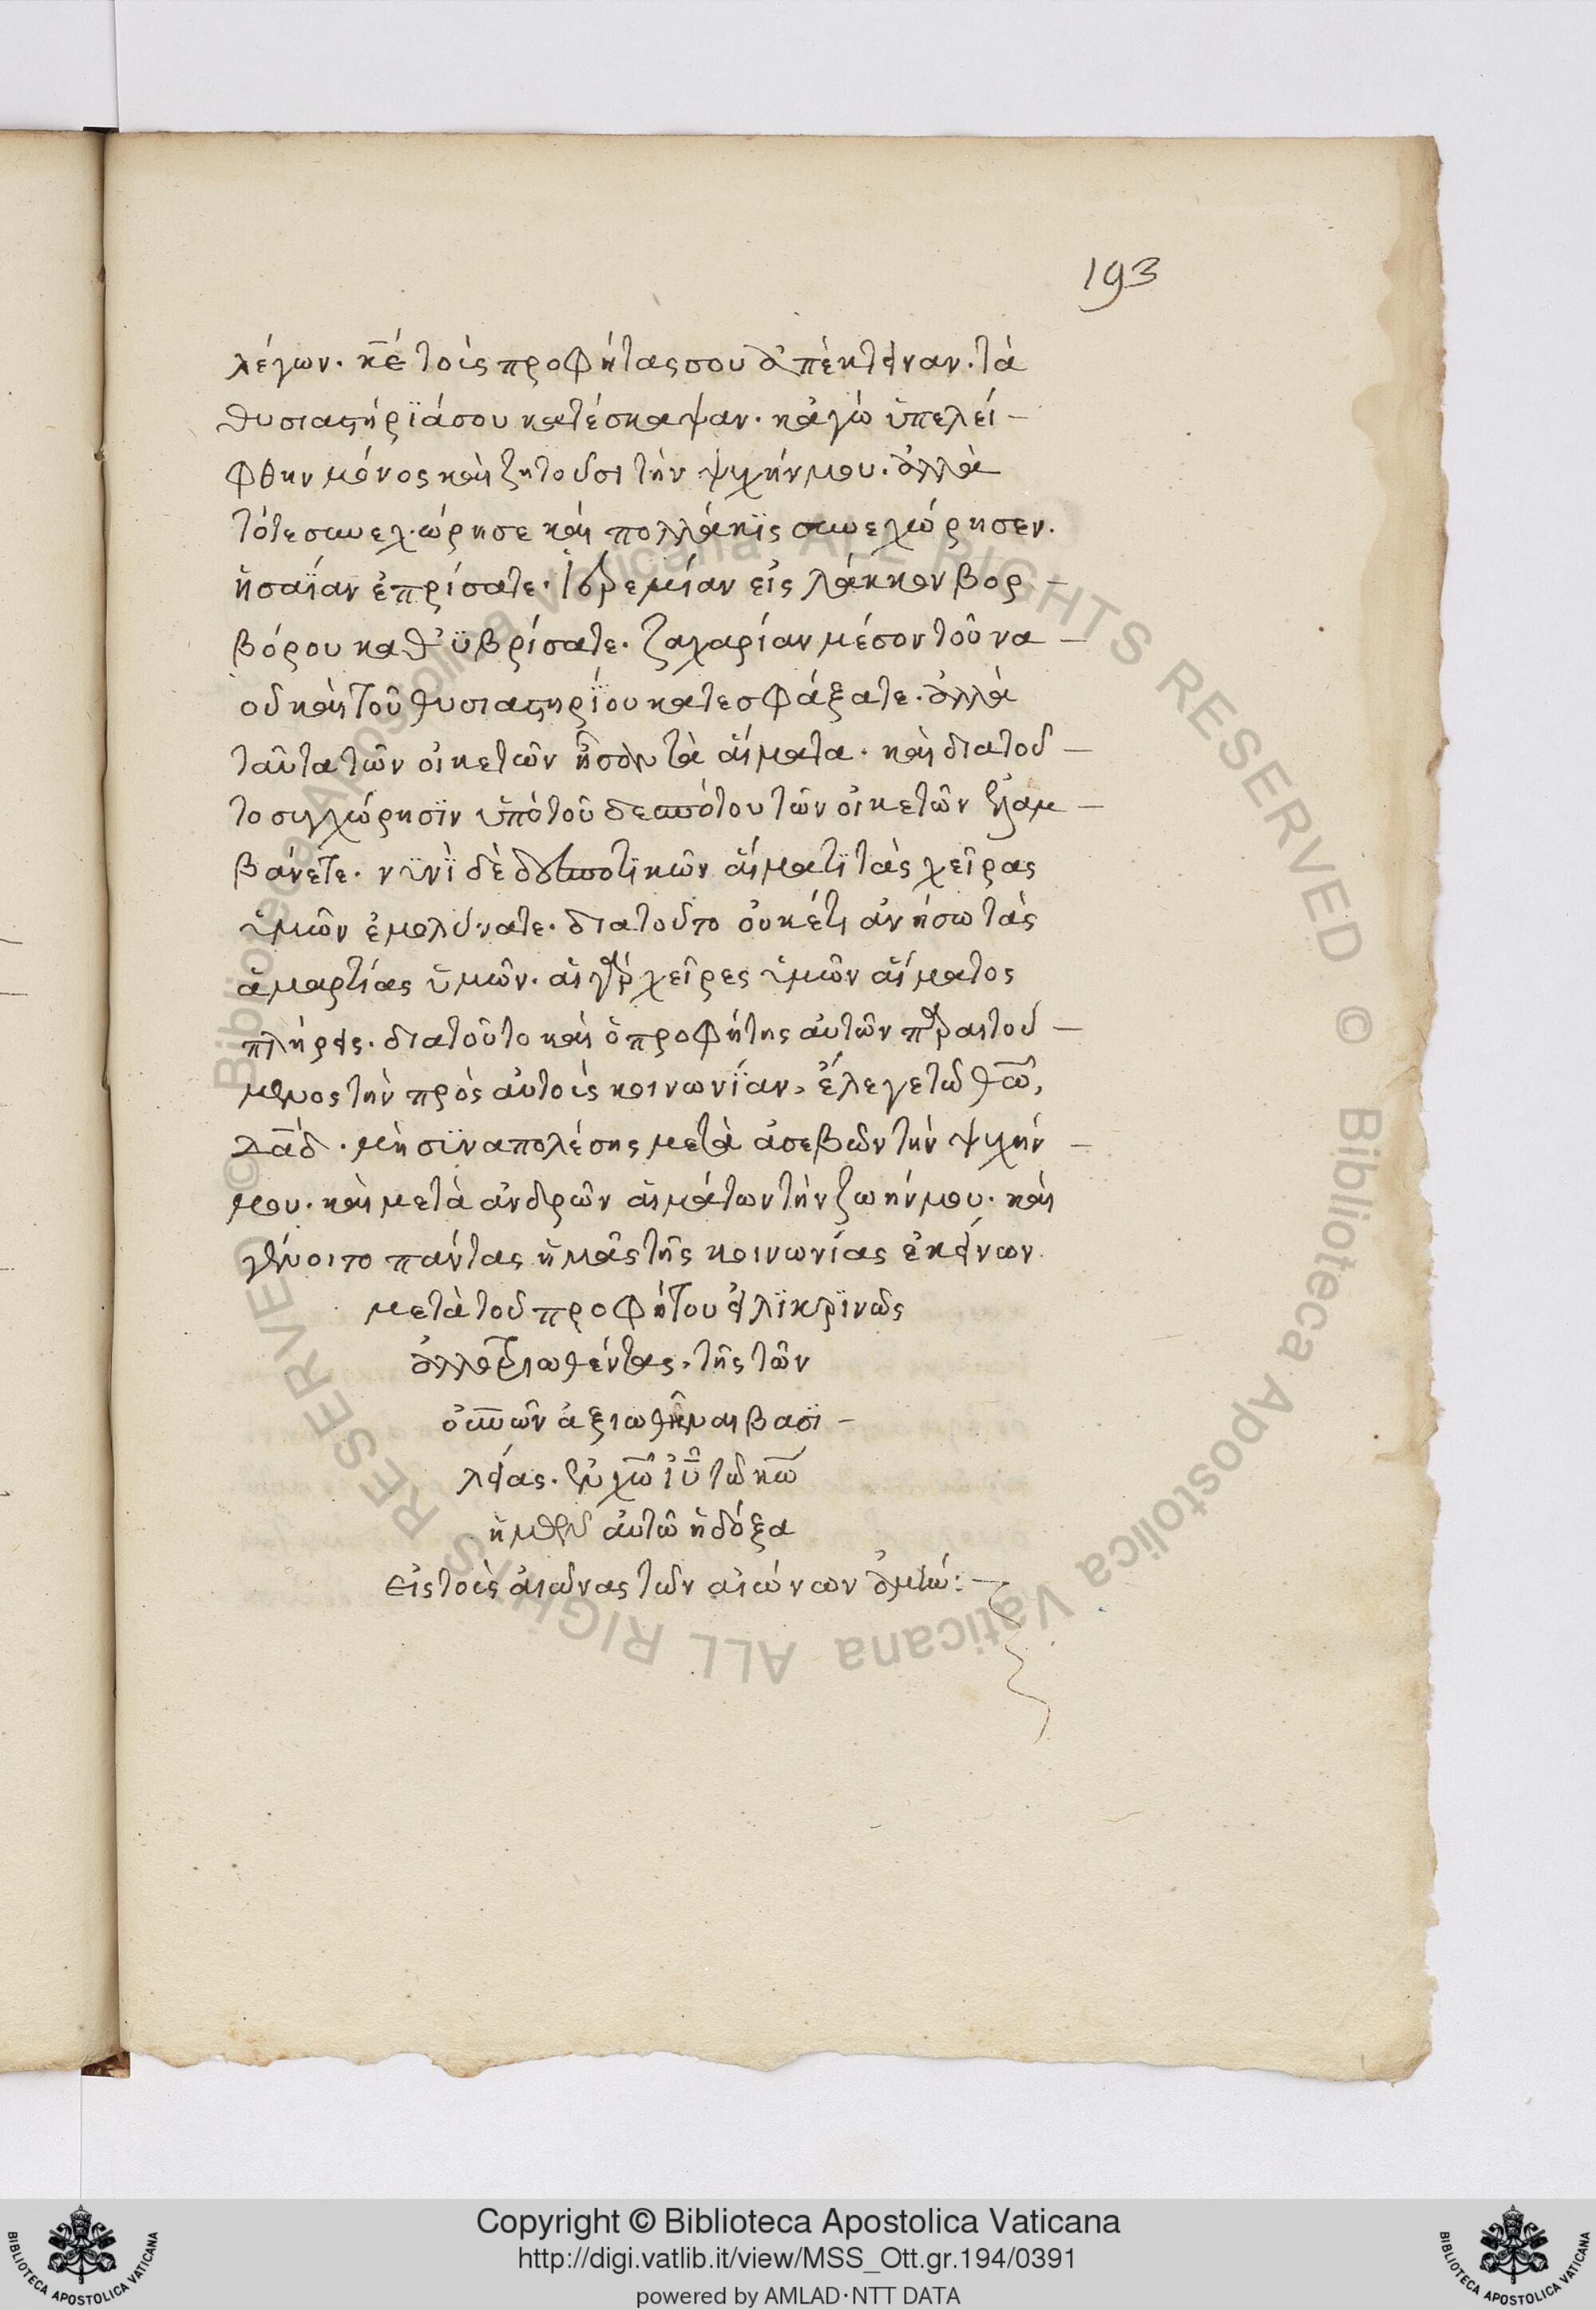 193
λέγων. κ̅ε̅ τοὺς προφήτας σου ἀπέκτειναν. τὰ
θυσιαστήριά σου κατέσκαψαν. κἀγὼ ὑπελεί-
φθην μόνος καὶ ζητοῦσι τὴν ψυχήν μου. ἀλλὰ
τότε συνεχώρησε καὶ πολλάκις συνεχώρησεν.
ἡσαΐαν ἐπρίσατε. ἱερεμίαν εἰς λάκκον βορ-
βόρου καθυβρίσατε. ζαχαρίαν μέσον τοῦ να-
οῦ καὶ τοῦ θυσιαστηρίου κατεσφάξατε. ἀλλὰ
ταῦτα τῶν οἰκετῶν ἦσαν τὰ αἵματα. καὶ διατοῦ-
το συγχώρησιν ὑπὸ τοῦ δεσπότου τῶν οἰκετῶν ἐλαμ-
βάνετε. νυνὶ δὲ δεσποτικῶν αἵματι τὰς χεῖρας
ὑμῶν ἐμολύνατε. διατοῦτο οὐκέτι ἀνήσω τὰς
ἁμαρτίας ὑμῶν. αἱ γὰρ χεῖρες ὑμῶν αἵματος
πλήρεις. διατοῦτο καὶ ὁ προφήτης αὐτῶν παραιτού-
μενος τὴν πρὸς αὐτοὺς κοινωνίαν, ἔλεγε τῶ θ̅ω̅,
δ̅α̅δ̅. μὴ συναπολέσης μετὰ ἀσεβῶν τὴν ψυχήν-
μου. καὶ μετὰ ἀνδρῶν αἱμάτων τὴν ζωήν μου. καὶ
γένοιτο πάντας ἡμᾶς τῆς κοινωνίας ἐκείνων
μετὰ τοῦ προφήτου εἰλικρινῶς
ἀλλοτριωθέντας, τῆς τῶν
οὐ̅ν̅ῶν ἀξιωθῆναι βασι-
λείας. ἐν χ̅ω̅ ι̅υ̅ τῶ κ̅ω̅
ἡμῶν αὐτῶ ἡ δόξα
εἰς τοὺς αἰῶνας τῶν αἰώνων ἀμήν:-
© Biblioteca Apostolica Vaticana ALL RIGHTS RESERVED © Biblioteca Apostolica Vaticana ALL RIGHTS RESERVED
Copyright © Biblioteca Apostolica Vaticana
http://digi.vatlib.it/view/MSS_Ott.gr.194/0391
powered by AMLAD·NTT DATA
BIBLIOTECA APOSTOLICA VATICANA
BIBLIOTECA APOSTOLICA VATICANA